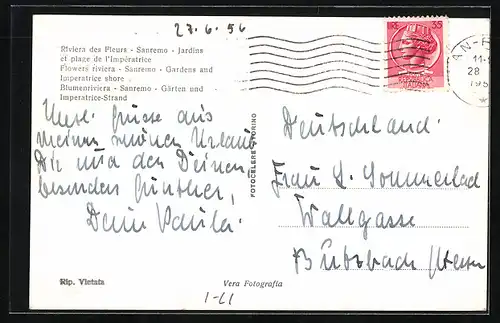 27.6.56
Riviera des Fleurs - Sanremo - Jardins
et plage de l'Impératrice
Flowers riviera - Sanremo - Gardens and
Imperatrice shore
Blumenriviera - Sanremo - Gärten und
Imperatrice-Strand
35
11-
28
195
Herzl. Grüsse aus
meinem schönen Urlaub
Dir und den Deinen,
besonders Günther,
Deine Paula.
FOTOCELERE TORINO
Deutschland.
Frau L. Sommerlad
Wallgasse
Butzbach / Hessen
Rip. Vietata
Vera Fotografia
1-61